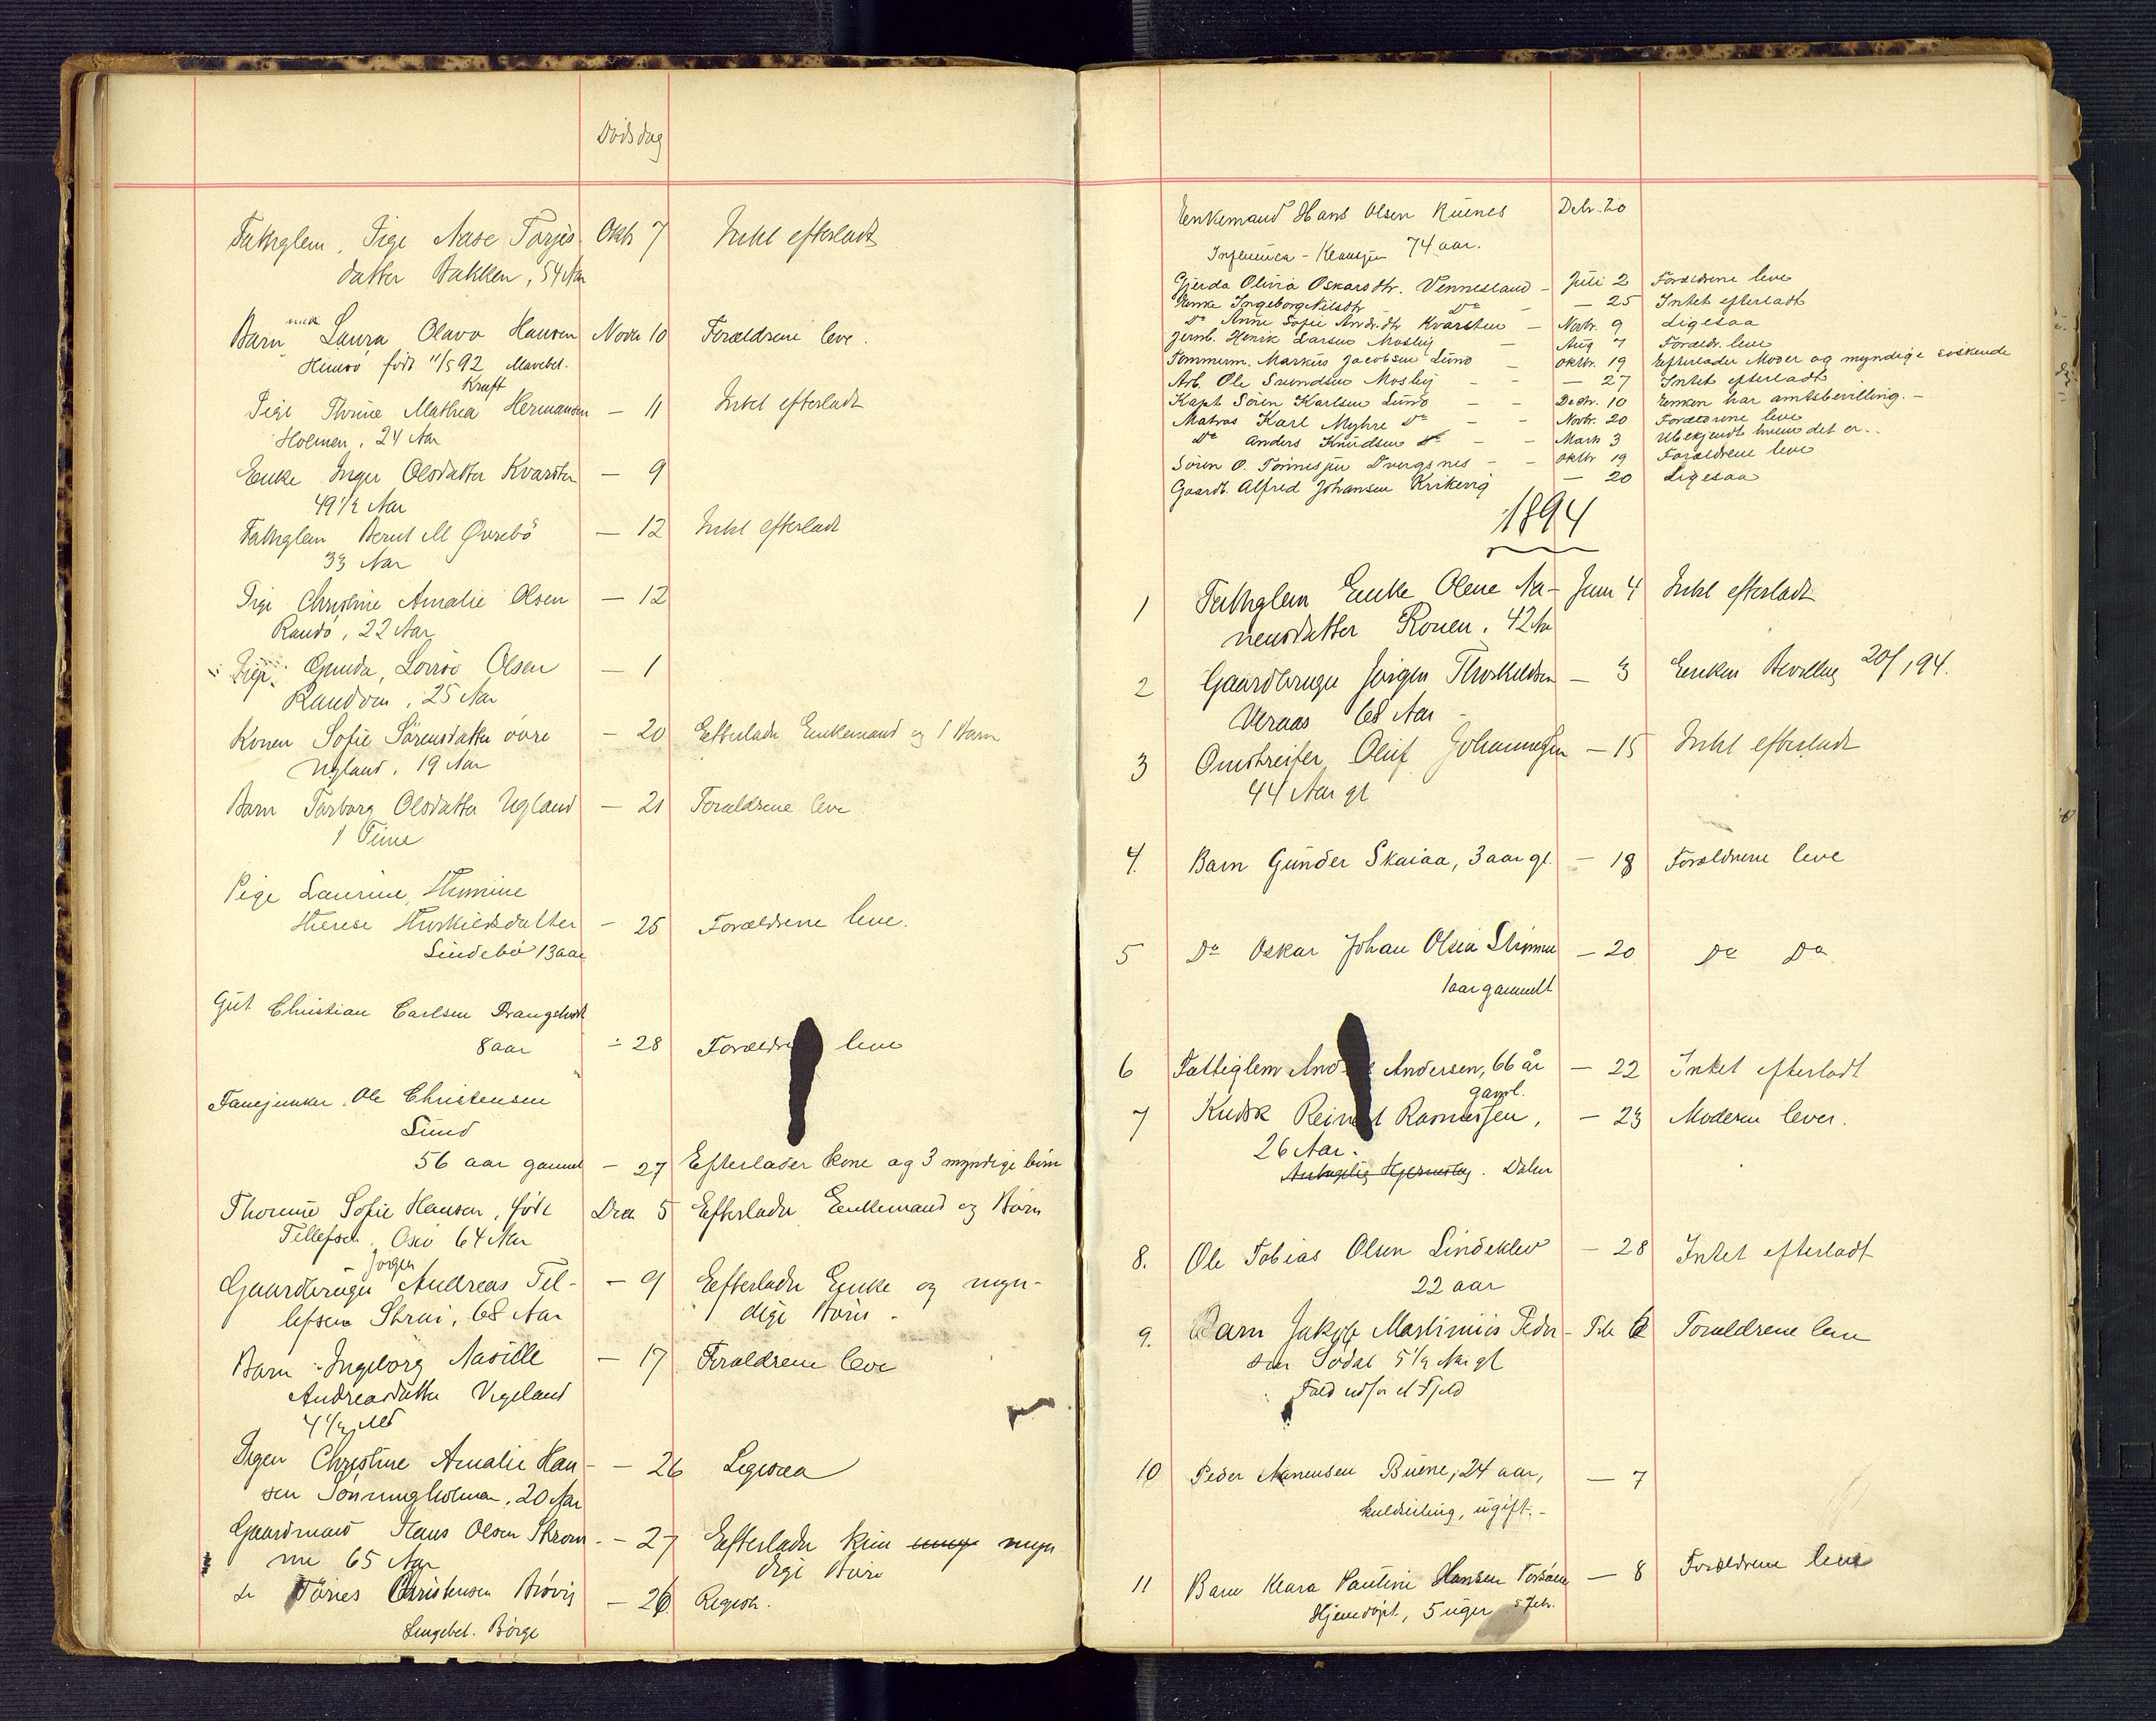 Dödsdag
Fattiglem, Pige Aase Torjes- Oktb 7 Intet efterladt
datter Bakken, 54 Aar
Barn Laura Olava Hansen Novbr 10 Forældrene leve.
Himsö född 11/5 92 Mavebet.
Kraft
Pige Thrine Mathea Hermansen — 11 Intet efterladt
Holmen, 24 Aar
Enke Inger Olsdatter Kvarsten — 9
49 1/2 Aar
Fattiglem Bernt M Øvrebö — 12 Intet efterladt
33 Aar
Pige Christine Amalie Olsen — 12
Randö, 22 Aar
Pige Gunda, Lovise Olsen — 1
Randöen, 25 Aar
Konen Sofie Sörensdatter övre — 20 Efterlader Enkemand og 1 Barn
Ugland, 19 Aar
Barn Torborg Olsdatter Ugland — 21 Forældrene leve
1 Time
Pige Laurine Thomine
Therese Thorkildsdatter — 25 Forældrene leve.
Lindebö 13 aar
Gut Christian Carlsen Drangsholt
8 aar — 28 Forældrene leve
Fanejunker Ole Christensen
Lund
56 aar gammel — 27 Efterlader kone og 3 myndige börn
Thomine Sofie Hansen, född Decbr 5 Efterlader Enkemand og Börn
Tellefsen, Osiö 64 Aar
Jörgen
Gaardbruger Andreas Tel- — 9 Efterlader Enke og myn-
lefsen Strai, 68 Aar dige Börn -
Barn Ingeborg Aasille — 17 Forældrene leve
Andreasdatter Vigeland
4 1/2 Md
Pigen Christine Amalie Han- — 26 Ligesaa
sen Tömmingholmen, 20 Aar
Gaardmand Hans Olsen Ström- — 27 Efterlader kun unge myn
me 65 Aar dige Börn
do Tönes Christensen Brövig — 26 Regist.
Lungebet. Börge
Enkemand Hans Olsen Kuenes Debr. 20
Influenca - 74 aar.
Gjerda Olivia Oskarsdtr. Vennesland - Juli 2 Forældrene leve
Enke Ingeborg Nilsdtr Do — 25 Intet efterladt
Do Anne Sofie Andr.dtr Kvarsten — Novbr. 9 Ligesaa
Jernb. Henrik Larsen Mosby — Aug 7 Forældr. leve
Tömmerm. Markus Jacobsen Lund — Oktbr. 19 Efterlader Moder og myndige söskende
Arb. Ole Svendsen Mosby - - — 27 Intet efterladt
Kapt Sören Karlsen Lund — - Decbr. 10 Enken har amtsbevilling. -
Matros Karl Myhre Do - - Novbr. 20 Forældrene leve
Do Anders Knudsen Do - - Marts 3 Ubekjendt hvem det er..
Sören O. Tönnessen Dvergsnes - - Oktbr 19 Forældrene leve
Gaardb. Alfred Johansen Krikevig — 20 Ligesaa
1894
1 Fattiglem Enke Olene Aa- Janr 4 Intet efterladt
nensdatter Ronen. 42 Aar
2 Gaardbruger Jörgen Thorkildsen — 3 Enken Bevilling 20/1 94.
Veraas 68 Aar -
3 Omstreifer Oluf Johannessen — 15 Intet efterladt
44 Aar gl
4. Barn Gunder Skaiaa, 3 aar gl. — 18 Forældrene leve
5 Do Oskar Johan Olsen Strömme — 20 Do Do
1 aar gammelt
6 Fattiglem Andersen, 66 år — 22 Intet efterladt
gaml.
7 Kudsk Reinert Rasmussen, — 23 Moderen lever.
26 Aar.
Dalen
8. Ole Tobias Olsen Lindeklev — 28 Intet efterladt
22 aar
9. Barn Jakob Martinius Peder- Feb 6 Forældrene leve
sen Södal 5 1/2 Aar gl
Fald udfor et Fjeld
10 Peder Aanensen Buene, 24 aar, — 7
kuldseiling, ugift. -
11 Barn Klara Pauline Hansen Torsöen — 8 Forældrene leve
Hjemedöpt, 5 uger 5 Febr.